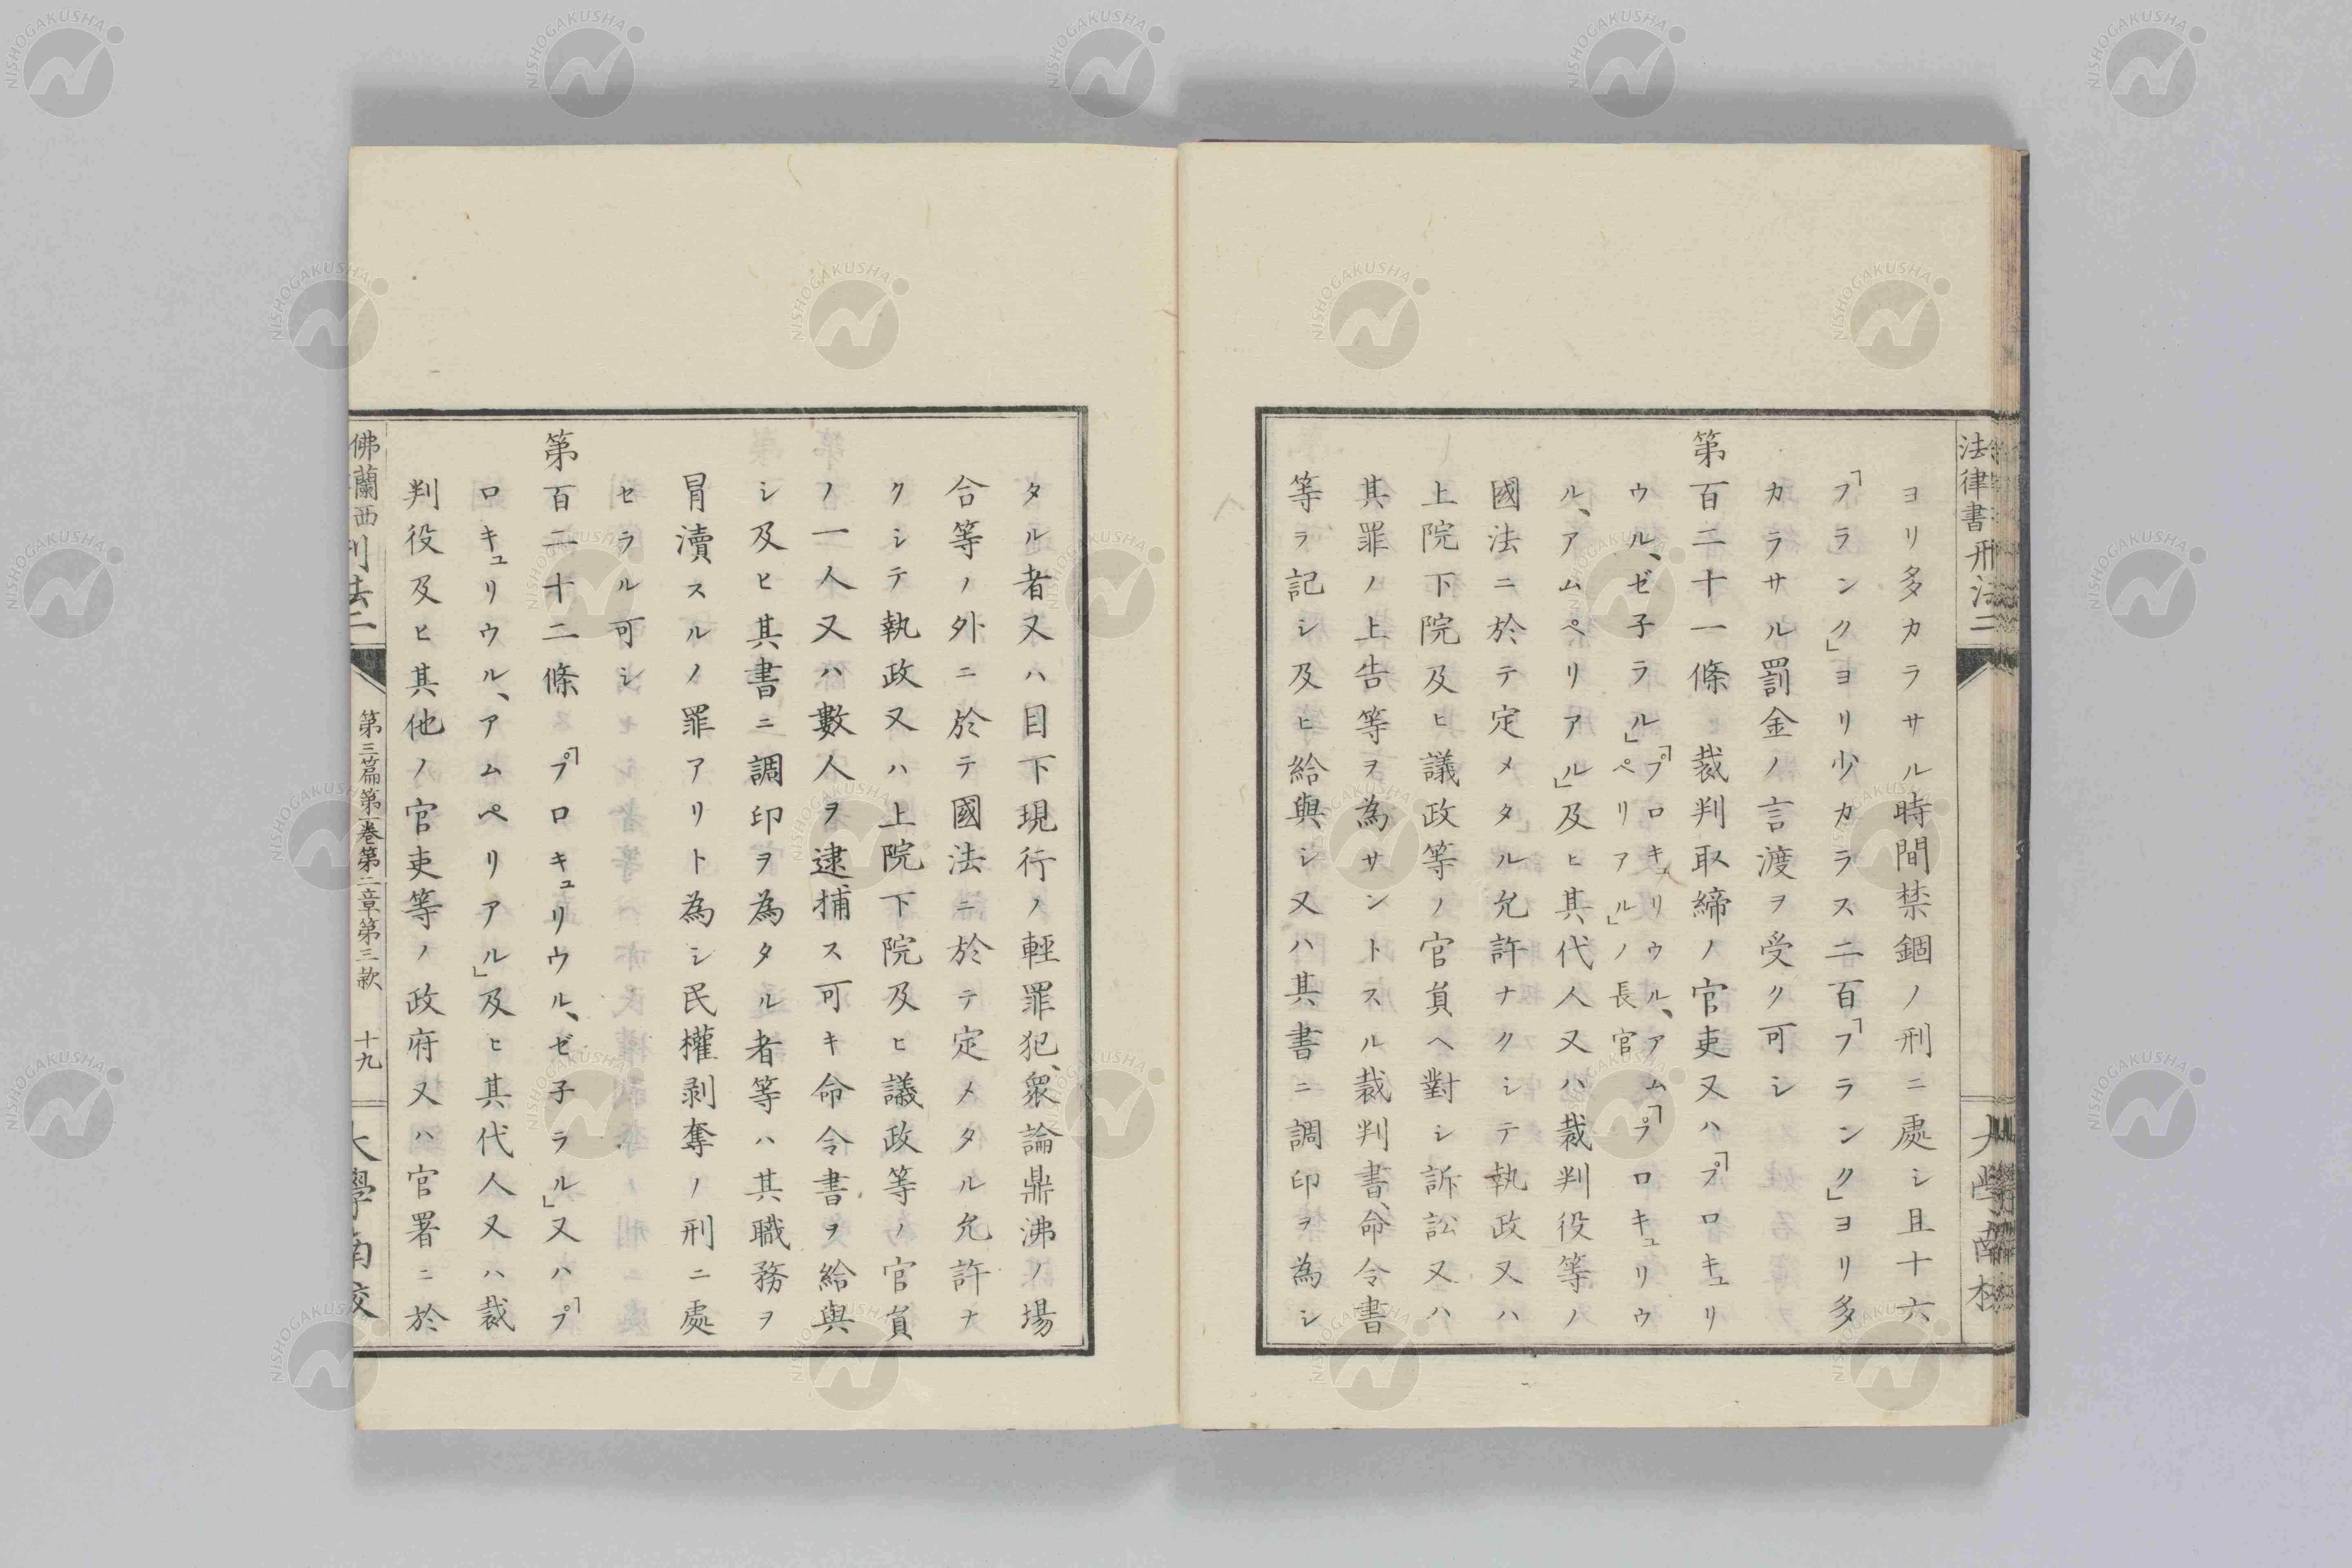 法律書刑法二
ヨリ多カラサル時間禁錮ノ刑ニ處シ且十六
「フランク」ヨリ少カラス二百「フランク」ヨリ多
カラサル罰金ノ言渡ヲ受ク可シ
第百二十一條 裁判取締ノ官吏又ハ「プロキュリ
ウル、ゼ子ラル」「プロキュリウル、アムペリアル」ノ長官「プロキュリウ
ル、アムペリアル」及ヒ其代人又ハ裁判役等ノ
國法ニ於テ定メタル允許ナクシテ執政又ハ
上院下院及ヒ議政等ノ官員ヘ對シ訴訟又ハ
其罪ノ上告等ヲ為サントスル裁判書、命令書
等ヲ記シ及ヒ給與シ又ハ其書ニ調印ヲ為シ
タル者又ハ目下現行ノ輕罪犯、衆論鼎沸ノ場
合等ノ外ニ於テ國法ニ於テ定メタル允許ナ
クシテ執政又ハ上院下院及ヒ議政等ノ官員
ノ一人又ハ數人ヲ逮捕ス可キ命令書ヲ給與
シ及ヒ其書ニ調印ヲ為タル者等ハ其職務ヲ
冐瀆スルノ罪アリト為シ民權剥奪ノ刑ニ處
セラル可シ
第百二十二條 「プロキュリウル、ゼ子ラル」又ハ「プ
ロキュリウル、アムペリアル」及ヒ其代人又ハ裁
判役及ヒ其他ノ官吏等ノ政府又ハ官署ニ於
佛蘭西刑法二 第三篇第一巻第二章第三款 十九 大學南校